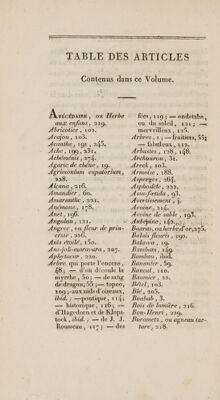 TABLE DES ARTICLES
Contenus dans ce Volume.
Abécédaire, ou Herbe
aux enfans, 219.
Abricotier, 101.
Acajou, 103.
Acanthe, 191, 245.
Ache, 199, 231.
Achéménis, 274.
Agaric de chêne, 19.
Agrimonium eupatorium,
228.
Alcana, 216.
Amandier, 60.
Amaranthe, 221.
Anémone, 178.
Anet, 196.
Angolan, 121.
Angrec, ou fleur de prin-
cesse, 226.
Anis étoilé, 150.
Ans-joli-maravara, 227.
Aphytacor, 220.
Arbre qui porte l'encens,
48; — d'où découle la
myrrhe, 50; — de sang
de dragon, 55; — topeo,
109; — aux nids d'oiseaux,
ibid.; — pontique, 114;
— historique, 116; —
d'Hagedorn et de Klops-
tock, ibid.; — de J. J.
Rousseau, 117; — des
fées, 119; — ondetah,
ou du soleil, 121; —
merveilleux, 125.
Arbres, 1; — fruitiers, 55;
— fabuleux, 112.
Arbustes, 128, 148.
Archourou, 31.
Areck, 103.
Armoise, 188.
Asperges, 264.
Asphodèle, 222.
Assa-foetida, 93.
Avertissement, j.
Avoine, 214.
Avoine de sable, 193.
Aubépine, 145.
Baaras, ou herbe d'or, 275.
Balais fleuris, 190.
Balassa, 19.
Balsam, 149.
Bambou, ibid.
Bananier, 59.
Barcal, 110.
Baumier, 22.
Bétel, 103.
Blé, 205.
Boabab, 3.
Bois de lumière, 216.
Bon-Henri, 229.
Boramets, ou agneau tar-
tare, 218.